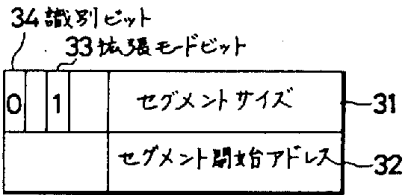 34 識別ビット
33 拡張モードビット
0 1 セグメントサイズ 31
セグメント開始アドレス 32